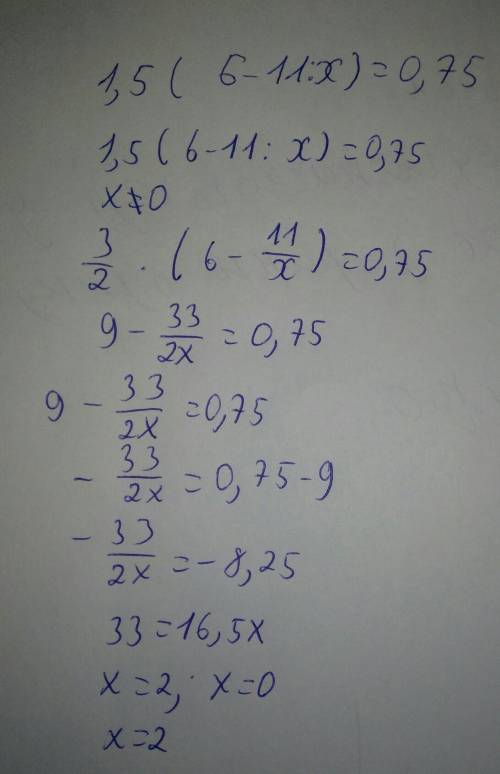 1,5 ( 6-11:x) = 0,75
1,5 (6-11: x) = 0,75
x≠0
3/2 · (6 - 11/x) = 0,75
9 - 33/2x = 0,75
9 - 33/2x = 0,75
- 33/2x = 0,75-9
- 33/2x = -8,25
33=16,5x
x=2, x=0
x=2